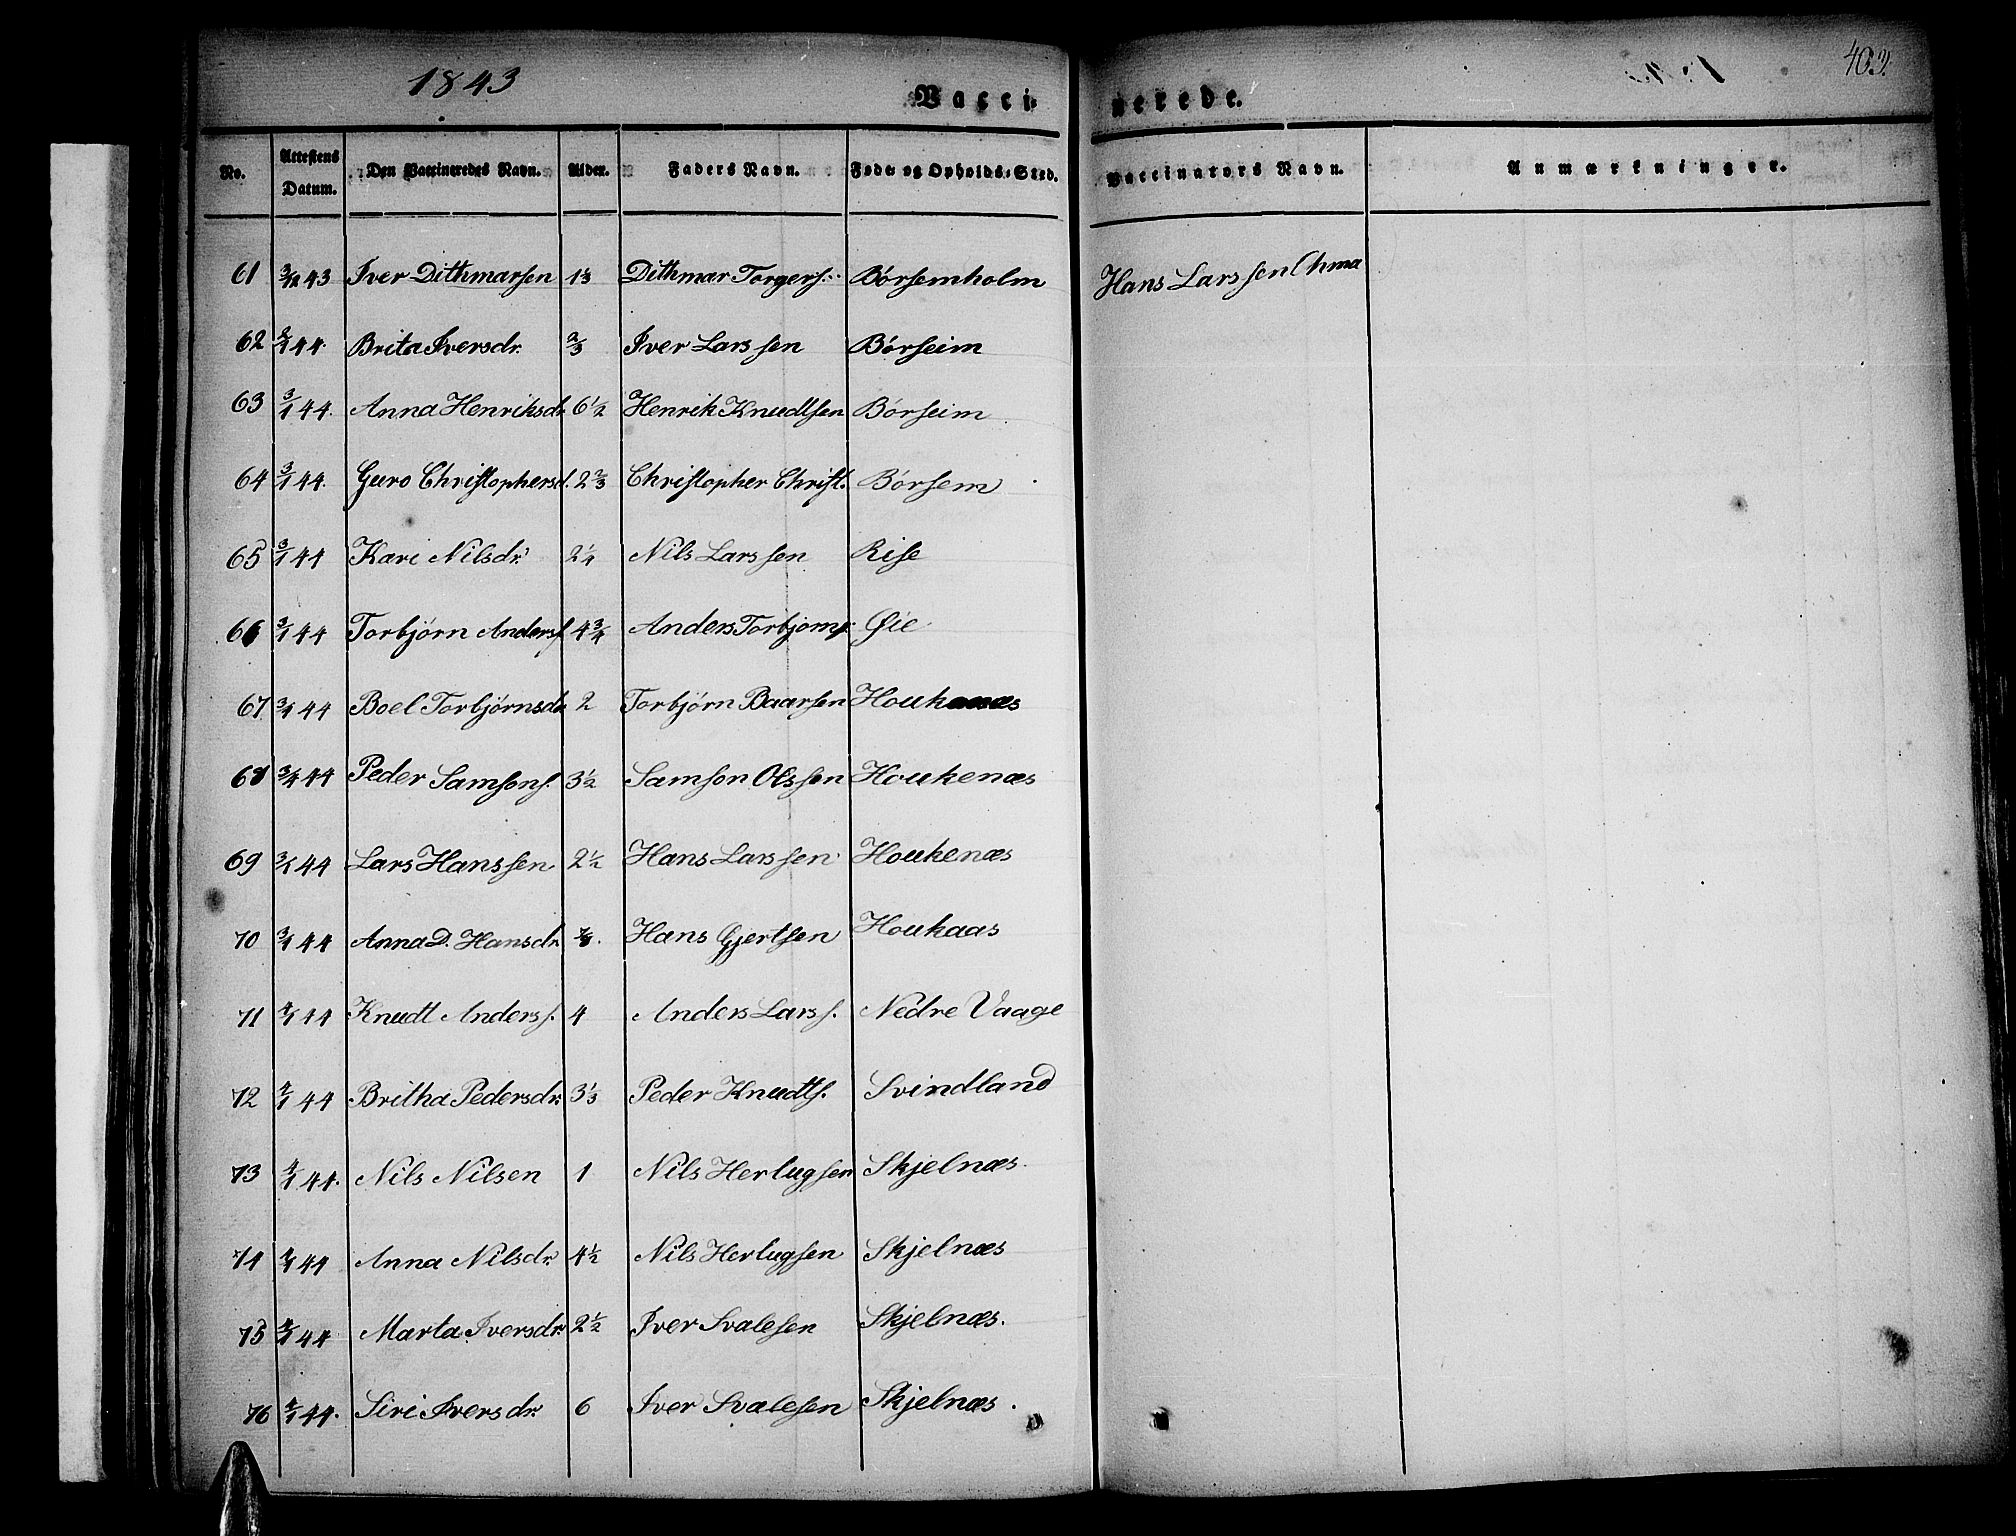 1843
403.
Vacci-
nerede.
No. Attestens Datum. Den Vaccineredes Navn. Alder. Faders Navn. Føde- og Opholds-Sted. Vaccinators Navn. Anmærkninger.
61 3/12 43 Iver Dithmarsen 1 1/3 Dithmar Torgers. Börsemholm Hans Larssen
62 2/1 44. Brita Iversdr. 2/3 Iver Larssen Börseim
63 3/1 44. Anna Henriksdr. 6 1/2 Henrik Knudtsen Börseim
64 3/1 44. Guro Christophersd. 2 2/3 Christopher Christ. Börsem
65 3/1 44 Kari Nilsdr. 2 1/4 Nils Larssen Rise
66 3/1 44 Torbjörn Anders. 4 3/4 Anders Torbjorns. Öie
67 3/1 44 Boel Torbjørnsdr. 2 Torbjørn Baarsen Houkenæs
68 3/1 44 Peder Samsons. 3 1/2 Samson Olssen Houkenæs
69 3/1 44 Lars Hanssen 2 1/2 Hans Larssen Houkenæs
70 3/1 44 Anna D. Hansdr. Hans Gjertsen Houkaas
71 4/1 44 Knudt Anders. 4 Anders Lars. Nedre Vaage
72 4/1 44 Britha Pedersdr. 3 1/3 Peder Knudts. Svindland
73 4/1 44. Nils Nilsen 1 Nils Herlugsen Skjelnæs.
74 4/1 44 Anna Nilsdr. 4 1/2 Nils Herlugsen Skjelnæs
75 4/1 44 Marta Iversdr. 2 1/2 Iver Svalesen Skjelnæs.
76 4/1 44. Siri Iversdr. 6 Iver Svalesen Skjelnæs.